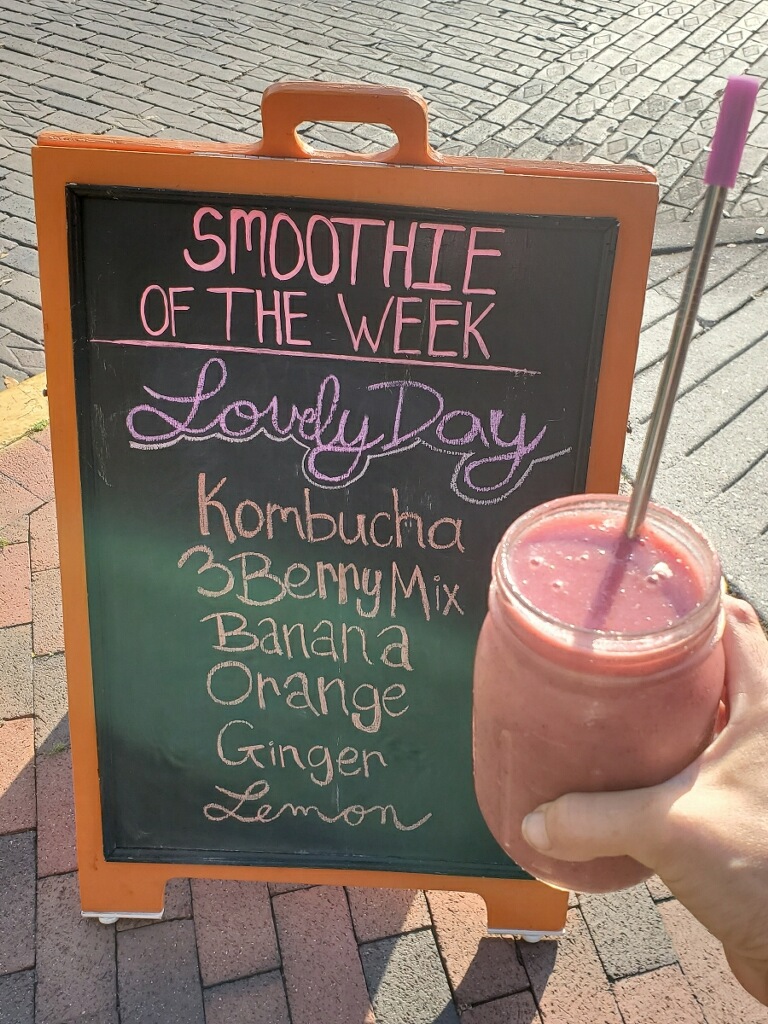 SMOOTHIE
OF THE WEEK
Lovely Day
Kombucha
3 Berry Mix
Banana
Orange
Ginger
Lemon